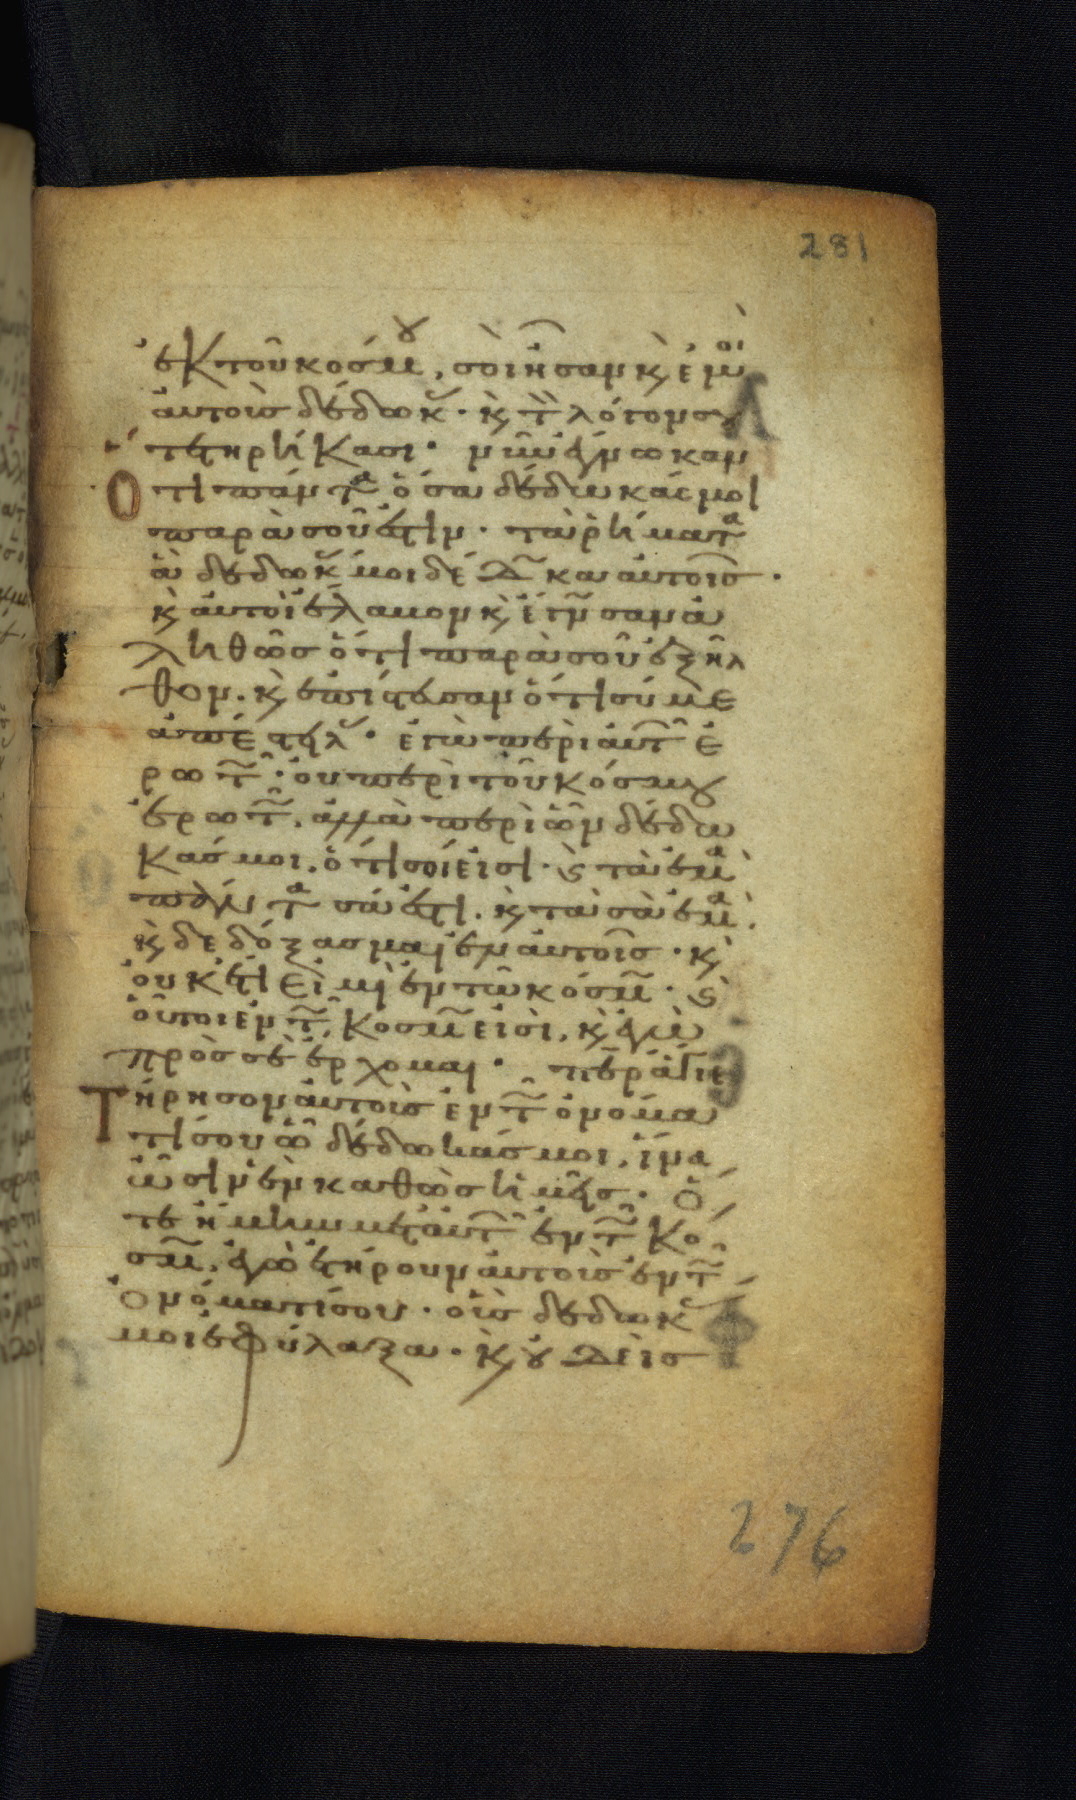 281
ἐκ τοῦ κοσμου, σοὶ ἦσαν κ, ἐμοὶ
ἀυτοὺσ δέδωκ. κ, τ λόγον σου
τετηρήκασι. νῦν ἔγνωκαν
ὅτι πάντα ὅσα δέδωκάσ μοι
παρὰ σοῦ ἐστιν. τὰ ῥήματα
ἃ δέδωκ μοι δέδωκα ἀυτοῖσ.
κ, ἀυτοὶ ἔλαβον κ, ἔγνσαν ἀ
ληθῶσ ὅτι παρὰ σοῦ ἐξῆλ
θον. κ, ἐπίστευσαν ὅτι σύ με
ἀπέστειλ. ἐγὼ περὶ ἀυτ ἐ
ρωτ. ὀυ περὶ τοῦ κόσμου
ἐρωτ. ἀλλὰ περὶ ὧν δέδω
κάσ μοι. ὅτι σοί εἰσι. κ, τὰ ἐμὰ
πάντα σά ἐστι. κ, τὰ σὰ ἐμά.
κ, δεδόξασμαι ἐν ἀυτοῖσ. κ,
ὀυκ ἔτι εἰμὶ ἐν τῶ κόσμ. κ,
οὗτοι ἐν τ κοσμ εἰσὶ, κ, ἐγὼ
πρὸσ σὲ ἔρχομαι. περ ἅγιε
Τήρησον ἀυτοὺσ ἐν τ ὀνόμα
τί σου ὧ δέδωκάσ μοι. ἵνα
ὦσιν ἓν καθὼσ ἡμεῖσ. ὅ
τε ἤμην μετ ἀυτ ἐν τ κό
σμ, ἐγὼ ἐτήρουν ἀυτοὺσ ἐν τ
ὀνόματί σου. οὓσ δέδωκ
μοι ἐφύλαξα. κ, ουδεὶσ
276